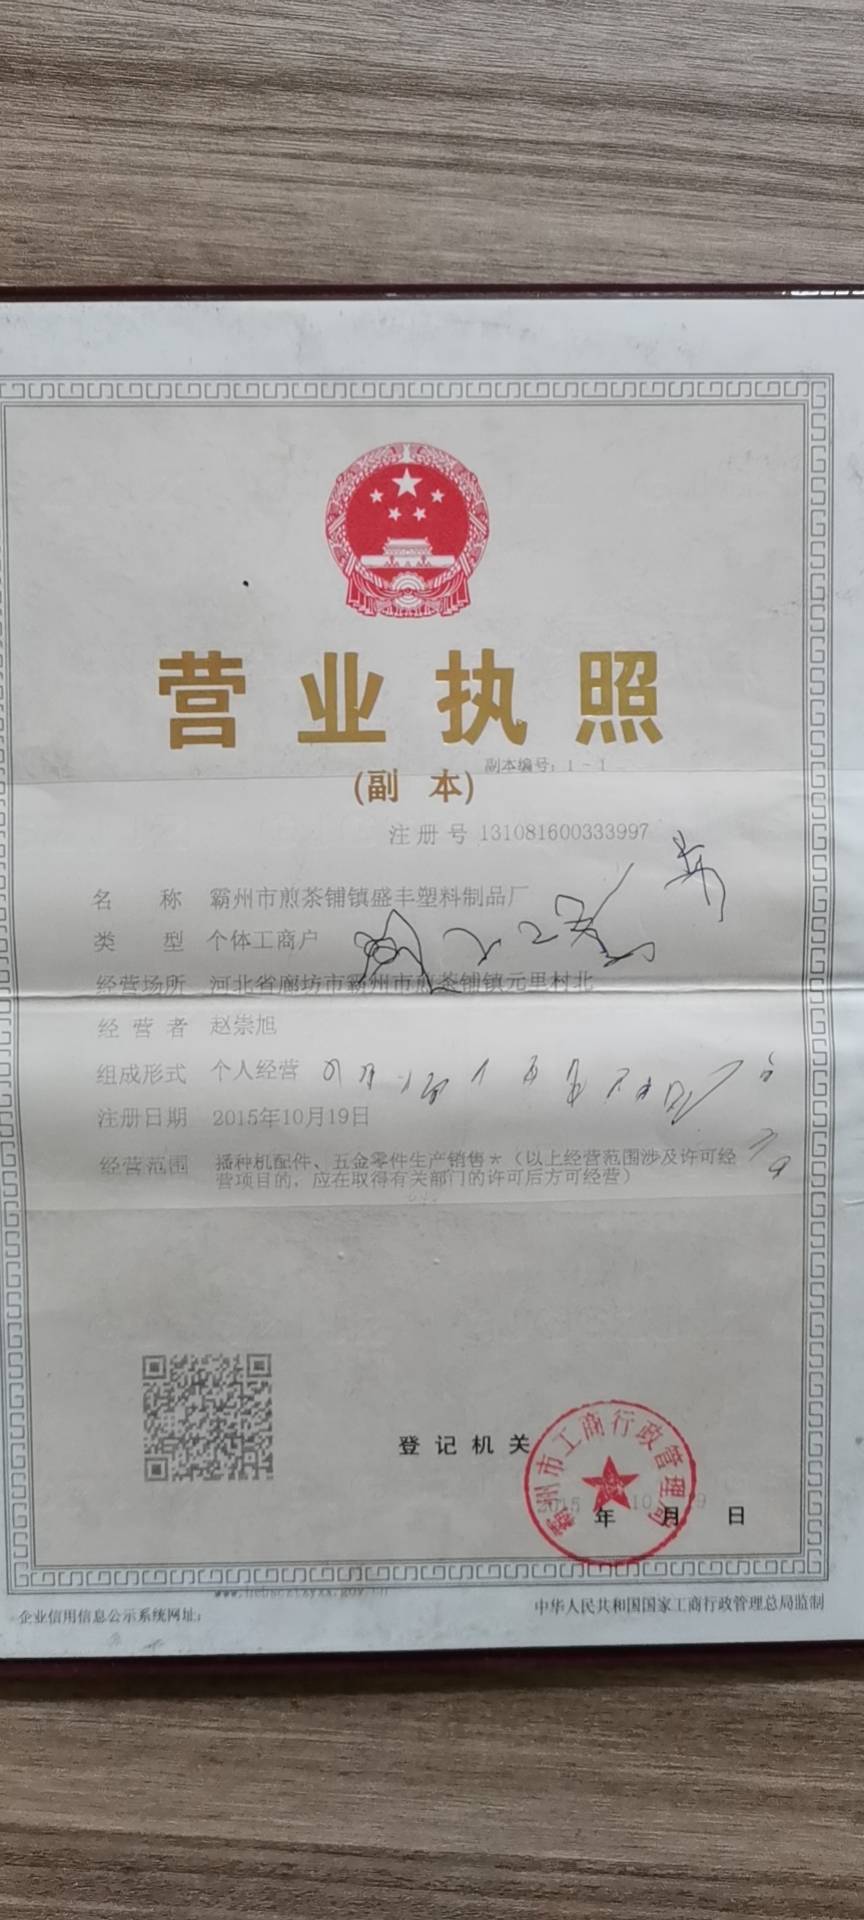 营业执照
(副 本)
副本编号：1-1
注册号 131081600333997
名 称 霸州市煎茶铺镇盛丰塑料制品厂
类 型 个体工商户
经营场所 河北省廊坊市霸州市煎茶铺镇元里村北
经营者 赵崇旭
组成形式 个人经营
注册日期 2015年10月19日
经营范围 播种机配件、五金零件生产销售*（以上经营范围涉及许可经
营项目的，应在取得有关部门的许可后方可经营）
登记机关
霸州市工商行政管理局
2015 年 10 月 19 日
企业信用信息公示系统网址：
中华人民共和国国家工商行政管理总局监制